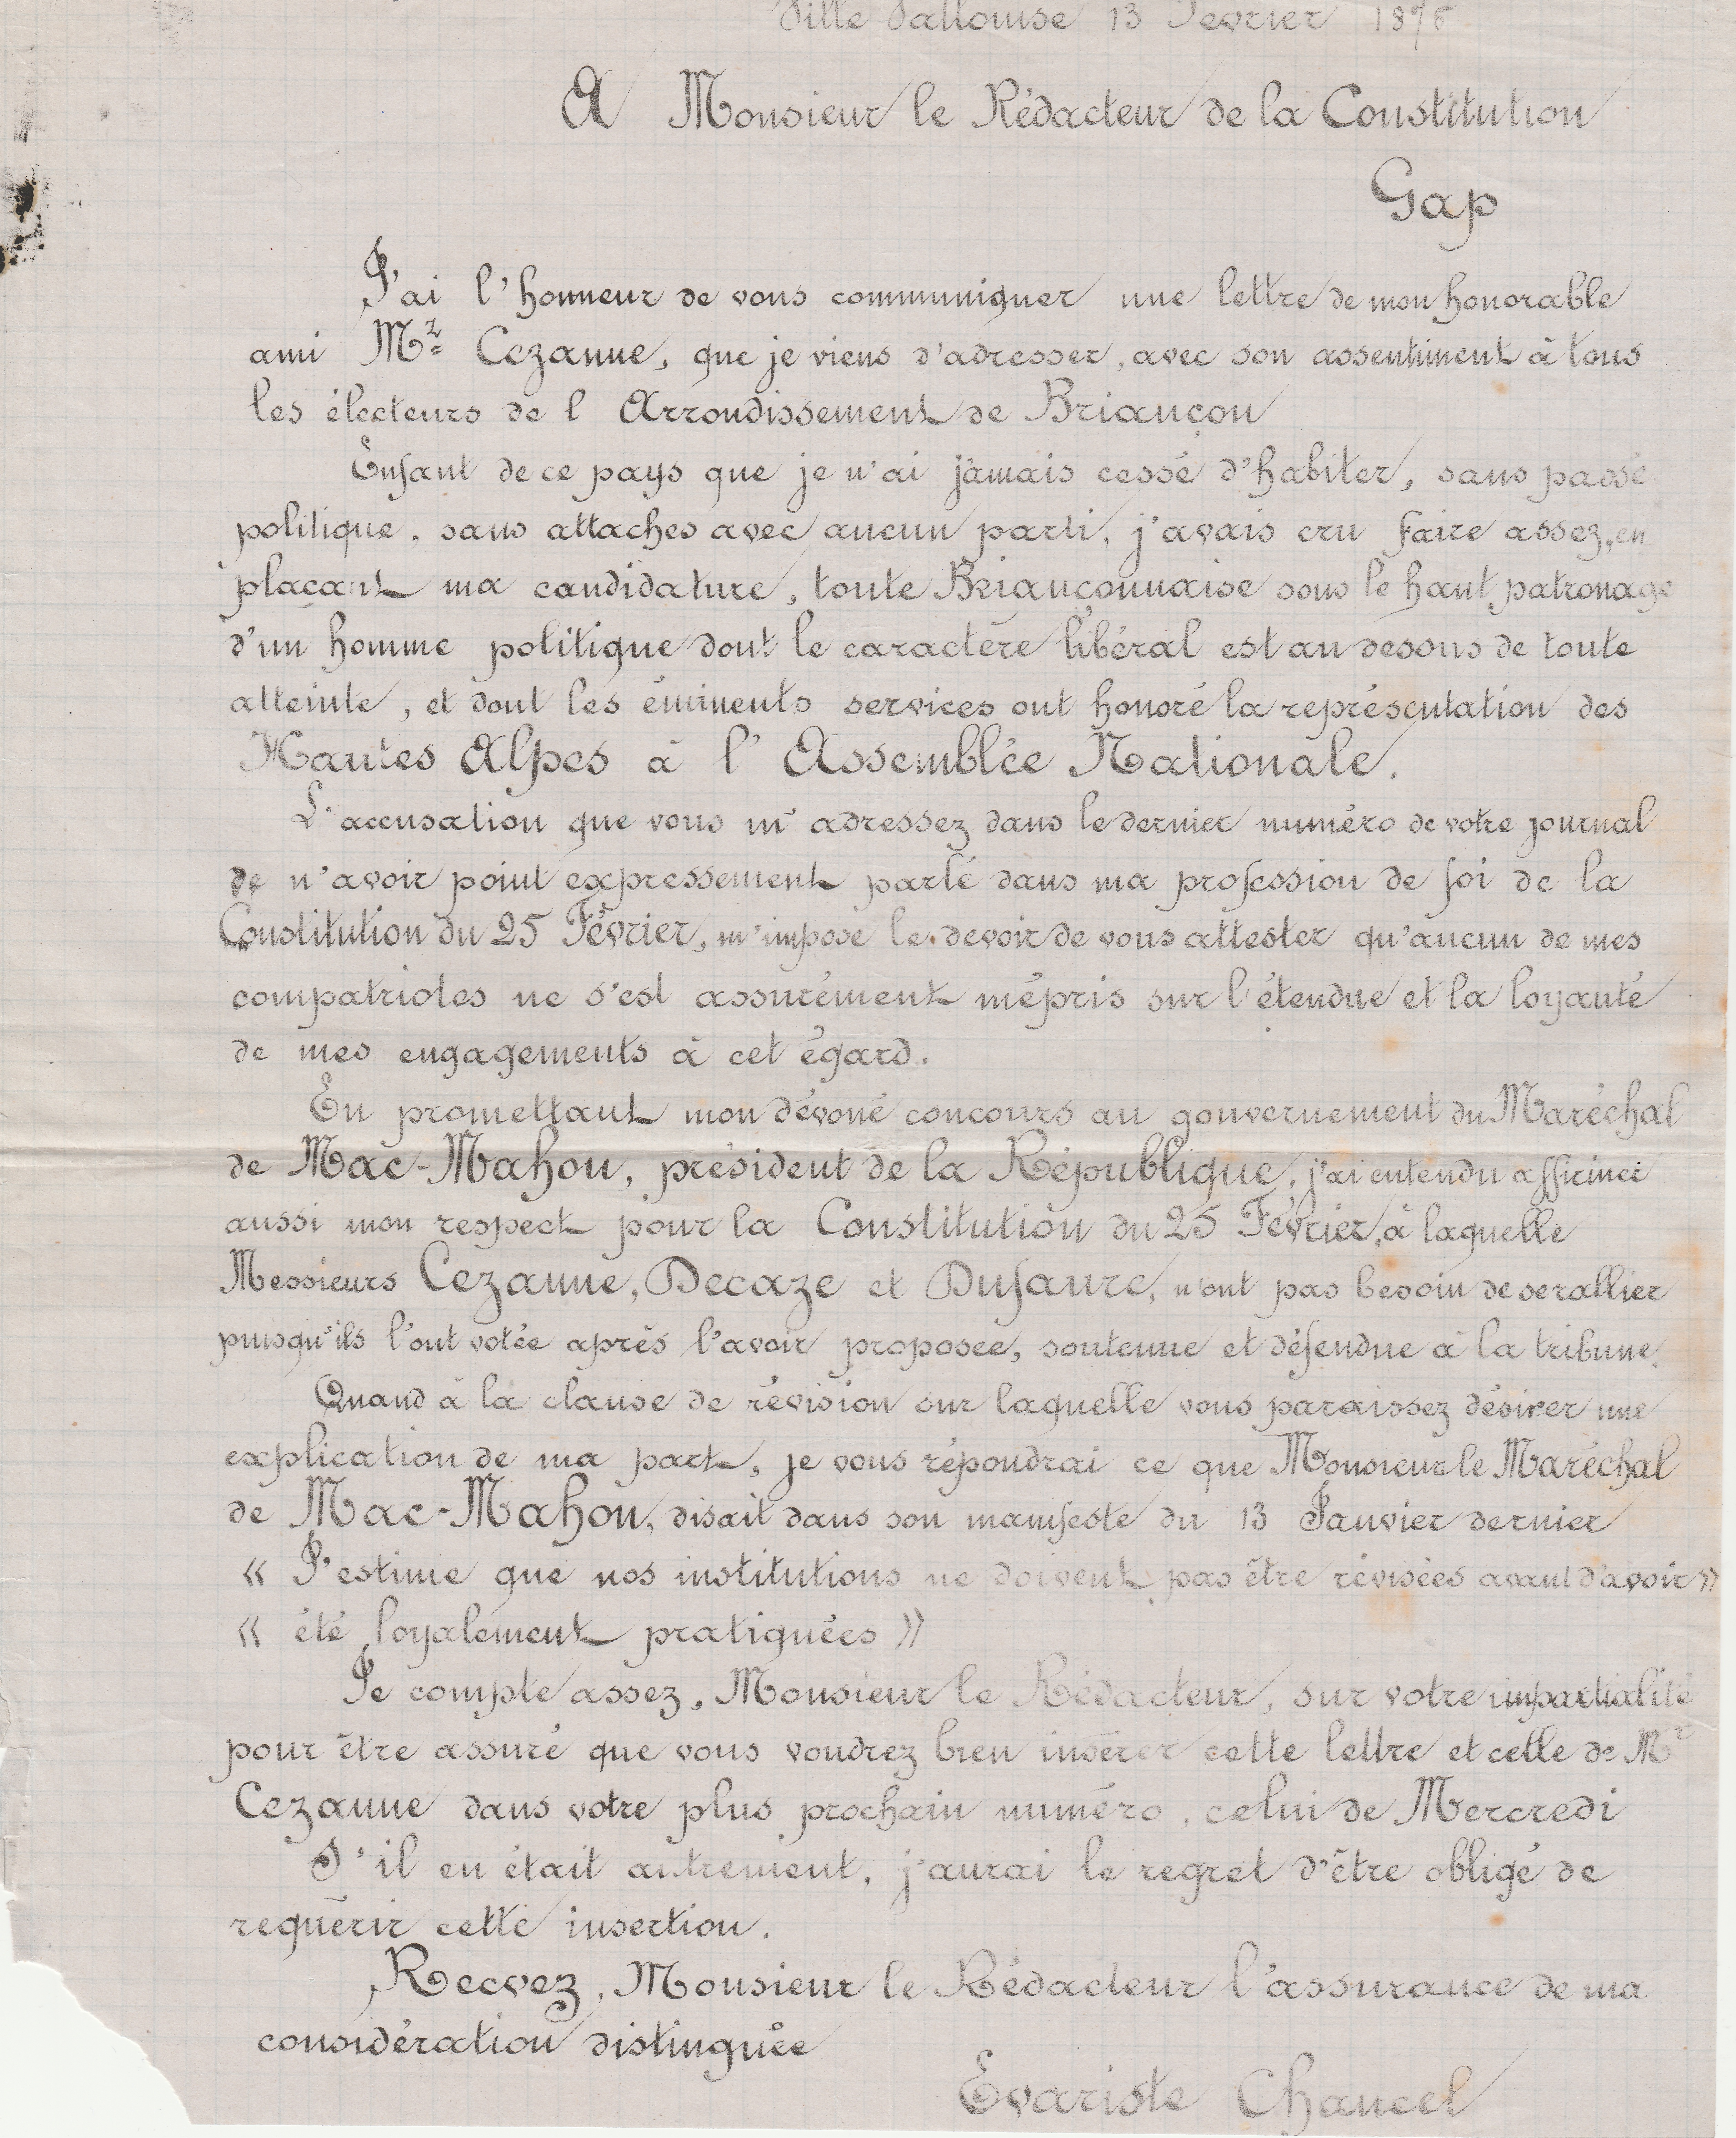 Ville Vallouise 13 Fevrier 1876
A Monsieur le Rédacteur de la Constitution
Gap
J'ai l'honneur de vous communiquer une lettre de mon honorable
ami Mr Cezanne, que je viens d'adresser, avec son assentiment à tous
les électeurs de l Arrondissement de Briançon
Enfant de ce pays que je n'ai jamais cessé d'habiter, sans passé
politique, sans attaches avec aucun parti, j'avais cru faire assez, en
plaçant ma candidature, toute Briançonnaise sous le haut patronage
d'un homme politique dont le caractère libéral est au dessus de toute
atteinte, et dont les éminents services ont honoré la représentation des
Hautes Alpes à l' Assemblée Nationale.
L'accusation que vous m'adressez dans le dernier numéro de votre journal
de n'avoir point expressement parlé dans ma profession de foi de la
Constitution du 25 Février, m'impose le devoir de vous attester qu'aucun de mes
compatriotes ne s'est assurément mépris sur l'étendue et la loyauté
de mes engagements à cet égard.
En promettant mon dévoué concours au gouvernement du Maréchal
de Mac-Mahon, président de la République, j'ai entendu affirmer
aussi mon respect pour la Constitution du 25 Février, à laquelle
Messieurs Cezanne, Decaze et Dufaure, n'ont pas besoin de se rallier
puisqu'ils l'ont votée après l'avoir proposee, soutenue et défendue à la tribune.
Quand à la clause de révision sur laquelle vous paraissez désirer une
explication de ma part, je vous répondrai ce que Monsieur le Maréchal
de Mac-Mahon, disait dans son manifeste du 13 Janvier dernier
« J'estime que nos institutions ne doivent pas être révisées avant d'avoir »
« été loyalement pratiquées »
Je compte assez, Monsieur le Rédacteur, sur votre impartialité
pour être assuré que vous voudrez bien insérer cette lettre et celle de Mr
Cezanne dans votre plus prochain numéro, celui de Mercredi
S'il en était autrement, j'aurai le regret d'être obligé de
requérir cette insertion.
Recvez, Monsieur le Rédacteur l'assurance de ma
considération distinguée
Evariste Chancel